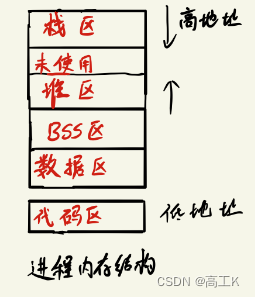 栈区
高地址
未使用
堆区
BSS区
数据区
代码区
低地址
进程内存结构
CSDN @高工K